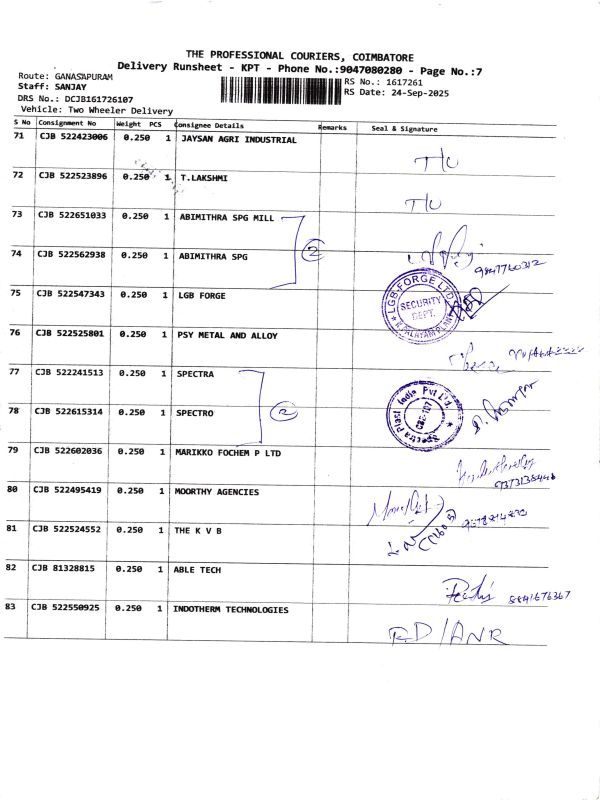 THE PROFESSIONAL COURIERS, COIMBATORE
Delivery Runsheet - KPT - Phone No.:9047080280 - Page No.:7
Route: GANASAPURAM
RS No.: 1617261
Staff: SANJAY
RS Date: 24-Sep-2025
DRS No.: DCJB161726107
Vehicle: Two Wheeler Delivery
S No Consignment No Weight PCS Consignee Details Remarks Seal & Signature
71 CJB 522423006 0.250 1 JAYSAN AGRI INDUSTRIAL
72 CJB 522523896 0.250 1 T.LAKSHMI
73 CJB 522651033 0.250 1 ABIMITHRA SPG MILL
2
74 CJB 522562938 0.250 1 ABIMITHRA SPG 9847760312
75 CJB 522547343 0.250 1 LGB FORGE
LGB FORGE LTD
SECURITY
DEPT.
76 CJB 522525801 0.250 1 PSY METAL AND ALLOY
77 CJB 522241513 0.250 1 SPECTRA
2
Spectra Plast India Pvt Ltd
78 CJB 522615314 0.250 1 SPECTRO
79 CJB 522602036 0.250 1 MARIKKO FOCHEM P LTD
80 CJB 522495419 0.250 1 MOORTHY AGENCIES
81 CJB 522524552 0.250 1 THE K V B
82 CJB 81328815 0.250 1 ABLE TECH
83 CJB 522550925 0.250 1 INDOTHERM TECHNOLOGIES
RD/ANR